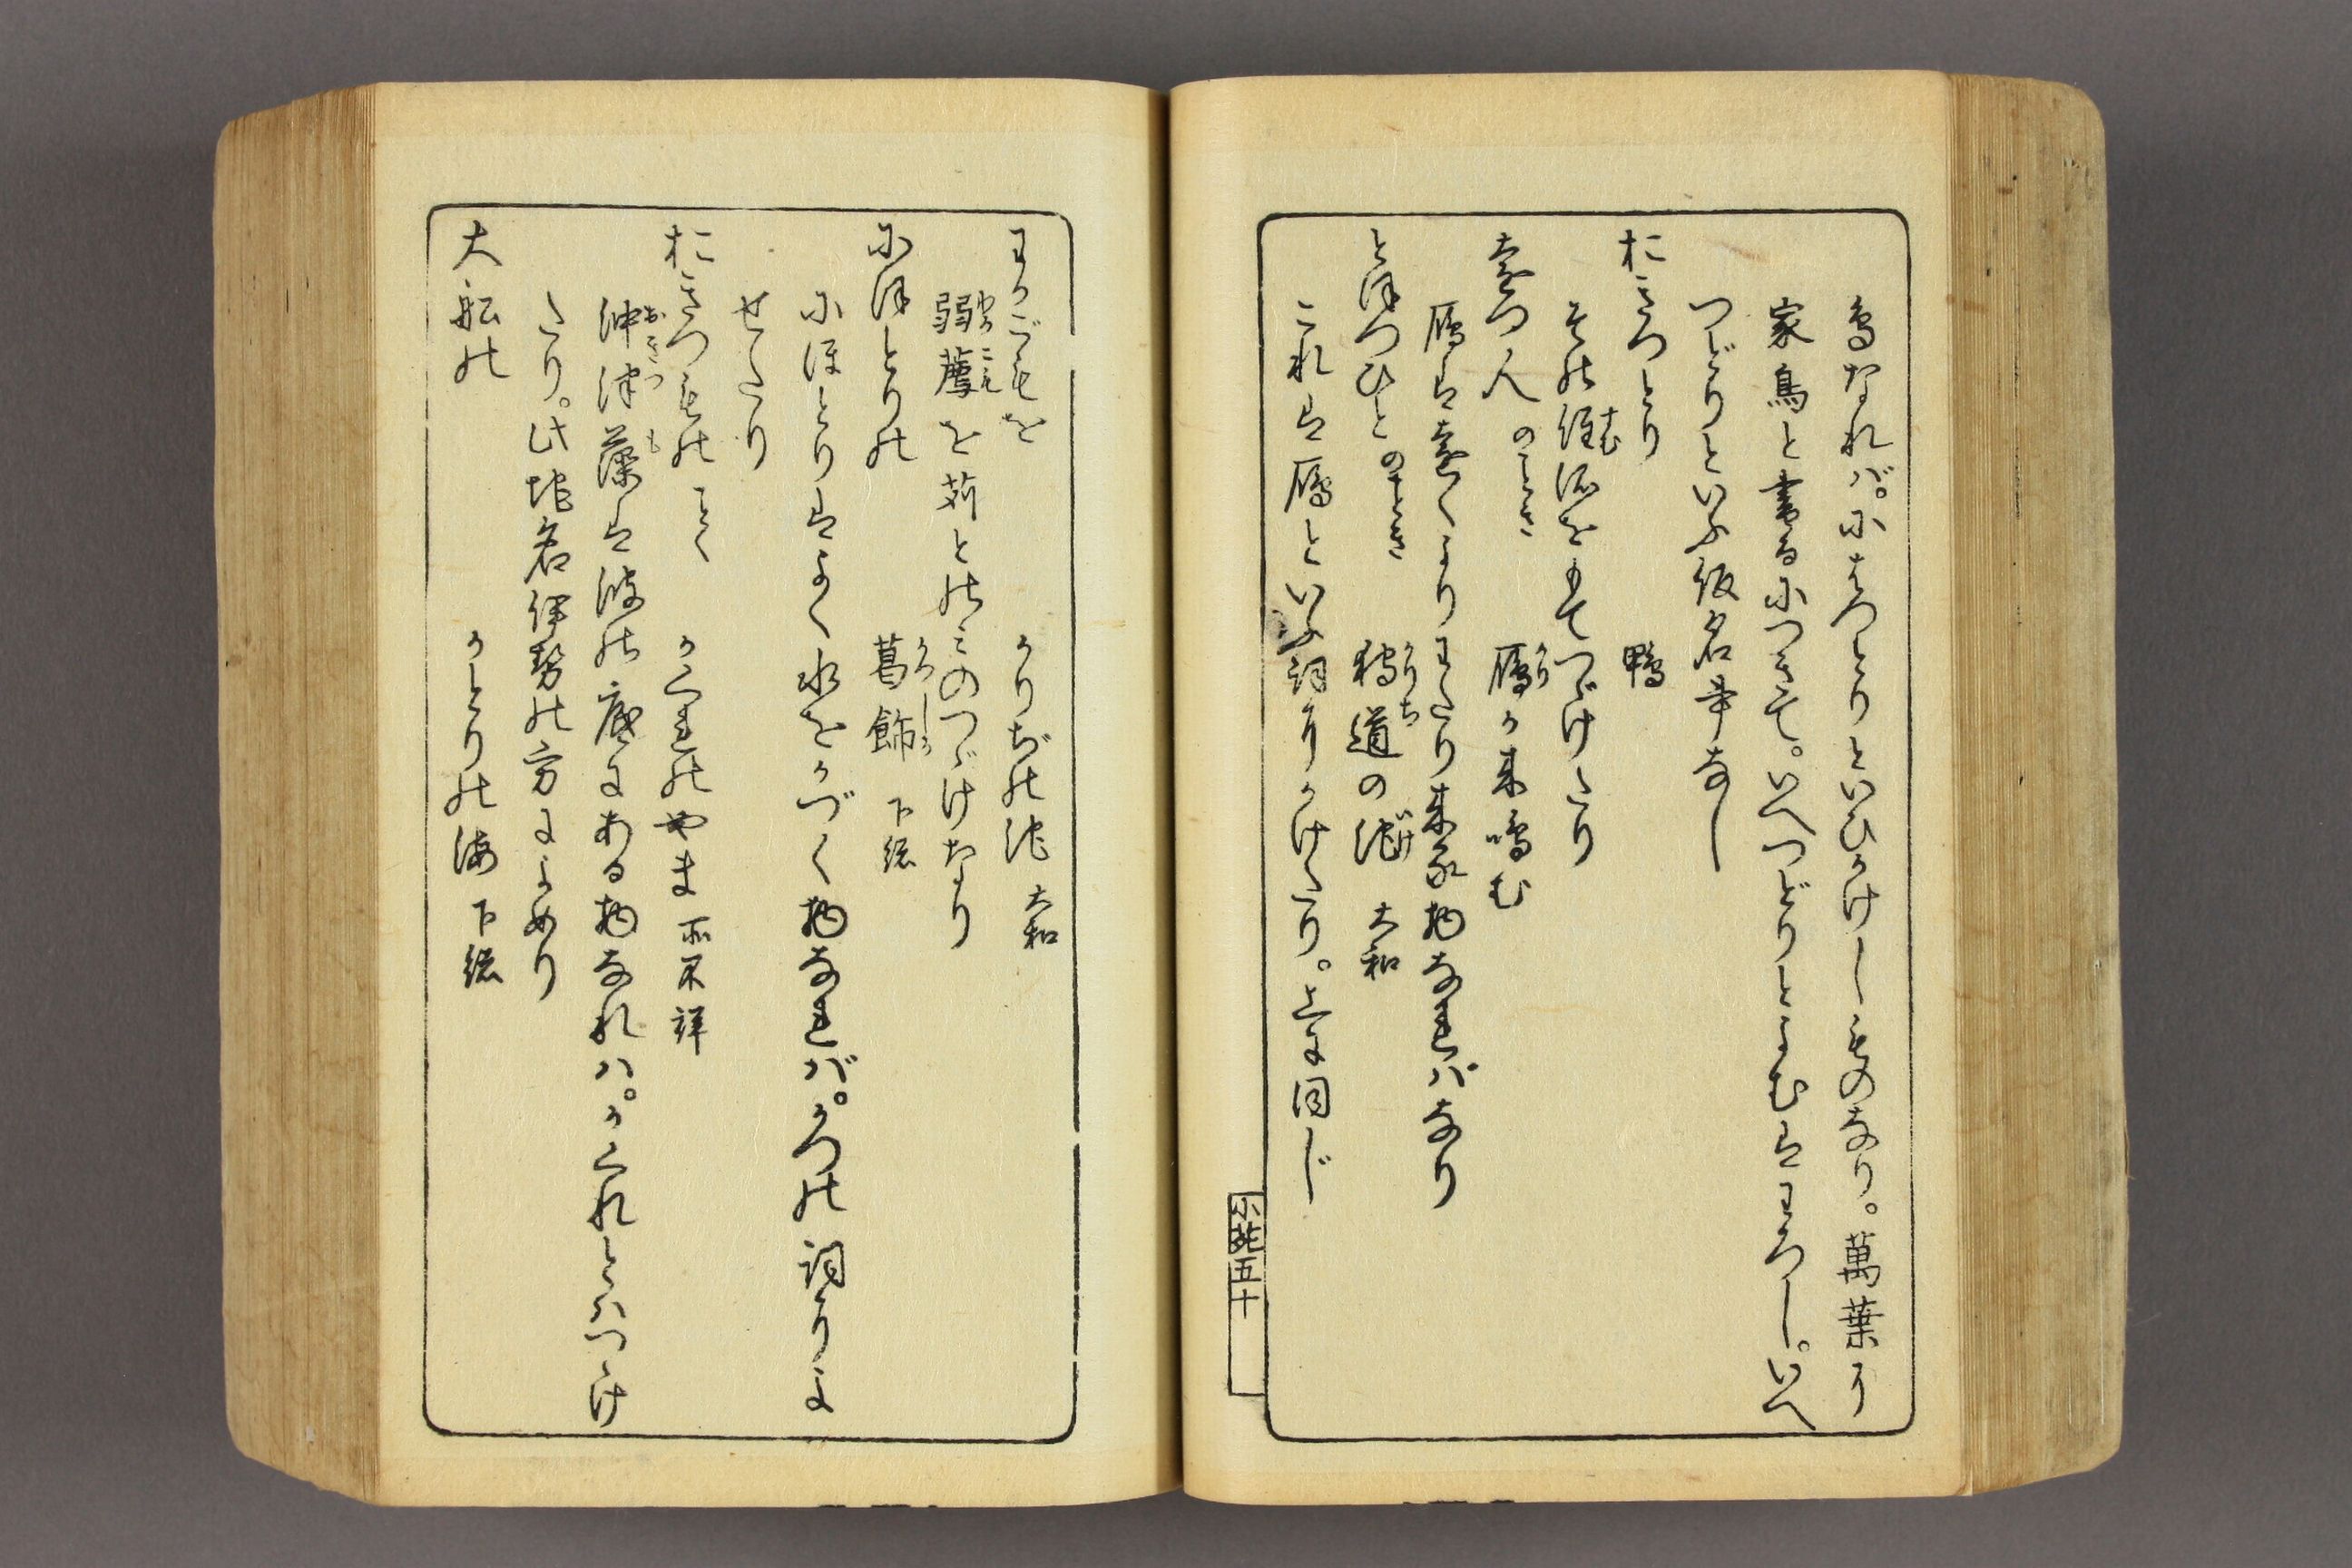 鳥なれバ。にはつとりといひかけしものなり。萬葉に
家鳥と書るにつきて。いへつどりとよむはわろし。いへ
つどりといふ仮名事なし
おきつとり　鴨
その住所をもてつゞけたり
遠つ人 のとき　鴈か来鳴む
鴈は遠くよりわたり来る物なれバなり
とほつひと のとき　猟道の池 大和
これは鴈といふ詞にかけたり。上に同じ
小詑五十
わかごもを　かりぢの池 大和
弱薦を苅とのみのつゞけなり
にほとりの　葛飾 下総
にほとりはよく水をかづく物なれバ。かつの詞によ
せたり
おきつもの とく　かくれのやま 所不詳
沖津藻は波の底にある物なれハ。かくれとハつゝけ
たり。此地名伊勢の方によめり
大舩の　かとりの海 下総